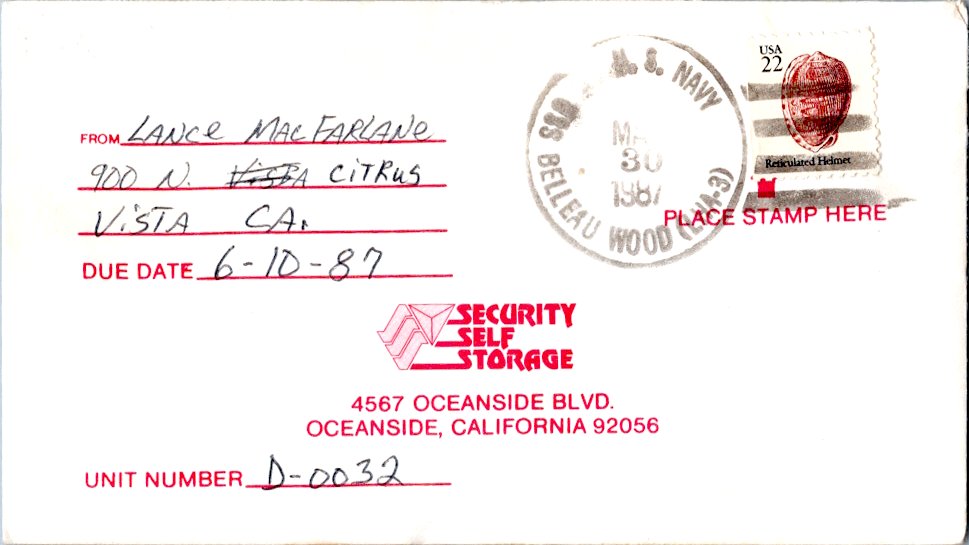 USA
22
Reticulated Helmet
U. S. NAVY
30
1987
BELLEAU WOOD (LHA-3)
PLACE STAMP HERE
FROM LANCE MACFARLANE
900 N. VISTA CITRUS
VISTA CA.
DUE DATE 6-10-87
SECURITY
SELF
STORAGE
4567 OCEANSIDE BLVD.
OCEANSIDE, CALIFORNIA 92056
UNIT NUMBER D-0032